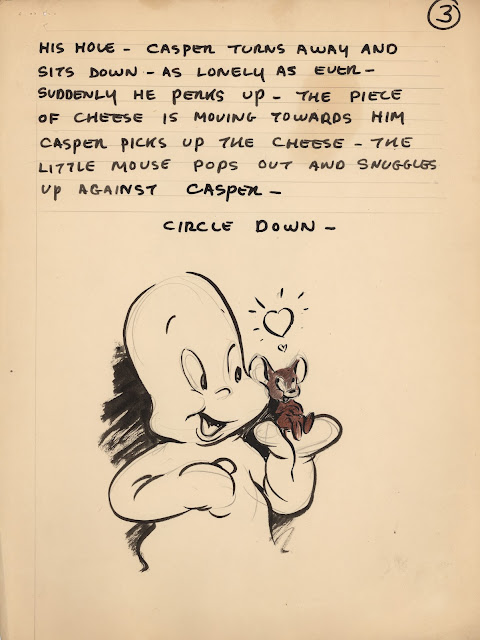 3
HIS HOLE - CASPER TURNS AWAY AND
SITS DOWN - AS LONELY AS EVER -
SUDDENLY HE PERKS UP - THE PIECE
OF CHEESE IS MOVING TOWARDS HIM
CASPER PICKS UP THE CHEESE - THE
LITTLE MOUSE POPS OUT AND SNUGGLES
UP AGAINST CASPER -
CIRCLE DOWN -